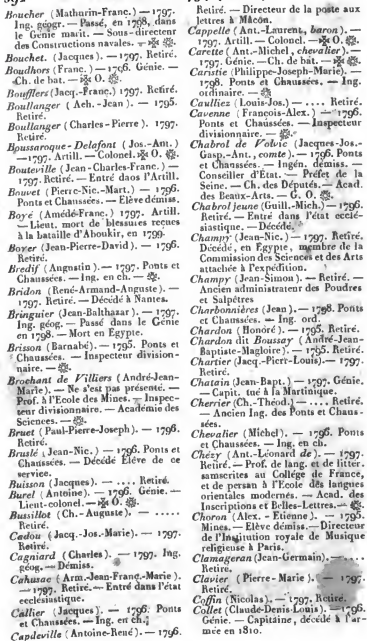 Boucher (Mathurin-Franc.) — 1797.
Ing. géogr. — Passé, en 1798, dans
le Génie marit. — Sous-directeur
des Constructions navales.
Bouchet. (Jacques). — 1797. Retiré.
Boudhors (Franc.) — 1796. Génie. —
Ch. de bat. — O.
Boufflers (Jacq.-Franc.) 1797. Retiré.
Boullanger (Ach.-Jean). — 1795.
Retiré.
Boullanger (Charles-Pierre). 1797.
Retiré.
Boussaroque-Delafont (Jos.-Ant.)
— 1797. Artill. — Colonel.
Bouteville (Jean-Charles-Franc.) —
1797. Retiré. — Entré dans l'Artill.
Bouvet (Pierre-Nic.-Mart.) — 1796.
Ponts et Chaussées. — Élève démiss.
Boyé (Amédé-Franc.) 1797. Artill.
— Lieut. mort de blessures reçues
à la bataille d'Aboukir, en 1799.
Boyer (Jean-Pierre-David). — 1796.
Retiré.
Bredif (Augustin). — 1797. Ponts et
Chaussées. — Ing. en ch. —
Bridon (René-Armand-Auguste). —
1797. Retiré. — Décédé à Nantes.
Bringuier (Jean-Balthazar). — 1797.
Ing. géog. — Passé dans le Génie
en 1798. — Mort en Égypte.
Brisson (Barnabé). — 1795. Ponts et
Chaussées. — Inspecteur division-
naire. —
Brochant de Villiers (André-Jean-
Marie). — Ne s'est pas présenté. —
Prof. à l'École des Mines. — Inspec-
teur divisionnaire. — Académie des
Sciences. —
Bruet (Paul-Pierre-Joseph). — 1796.
Retiré.
Bruslé (Jean-Nic.) — 1796. Ponts et
Chaussées. — Décédé Élève de ce
service.
Buisson (Jacques). — .... Retiré.
Burel (Antoine). — 1796. Génie. —
Lieut.-colonel. — O.
Bussillot (Ch.-Auguste). — .....
Retiré.
Cadou (Jacq.-Jos.-Marie). — 1797.
Retiré.
Cagniard (Charles). — 1797. Ing.
géog. — Démiss.
Cahusac (Arm.-Jean-Franc.-Marie).
— 1797. Retiré. — Entré dans l'état
ecclésiastique.
Callier (Jacques). — 1796. Ponts
et Chaussées. — Ing. en ch.
Capdeville (Antoine-René). — 1796.
Retiré. — Directeur de la poste aux
lettres à Mâcon.
Cappelle (Ant.-Laurent, baron). —
1797. Artill. — Colonel.
Carette (Ant.-Michel, chevalier). —
1797. Génie. — Ch. de bat. —
Caristie (Philippe-Joseph-Marie). —
1798. Ponts et Chaussées. — Ing.
ordinaire. —
Caulliez (Louis-Jos.) — .... Retiré.
Cavenne (François-Alex.) — 1796.
Ponts et Chaussées. — Inspecteur
divisionnaire. —
Chabrol de Volvic (Jacques-Jos.-
Gasp.-Ant., comte). — 1796. Ponts
et Chaussées. — Ingén. démiss. —
Conseiller d'État. — Préfet de la
Seine. — Ch. des Députés. — Acad.
des Beaux-Arts. — G. O.
Chabrol Jeune (Guill.-Mich.) — 1796.
Retiré. — Entré dans l'état ecclé-
siastique. — Décédé.
Champy (Jean-Nic.) — 1797. Retiré.
Décédé, en Égypte, membre de la
Commission des Sciences et des Arts
attachée à l'expédition.
Champy (Jean-Simon). — Retiré. —
Ancien administrateur des Poudres
et Salpêtres
Charbonnières (Jean). — 1798. Ponts
et Chaussées. — Ing. ord.
Chardon (Honoré). — 1795. Retiré.
Chardon dit Boussay (André-Jean-
Baptiste-Magloire). — 1795. Retiré.
Chartier (Jacq.-Pierr-Louis). — 1797.
Retiré.
Chatain (Jean-Bapt.) — 1797. Génie.
— Capit. tué à la Martinique.
Cherrier (Ch.-Théod.) — .... Retiré.
— Ancien Ing. des Ponts et Chaus-
sées.
Chevalier (Michel). — 1796. Ponts
et Chaussées. — Ing. en ch.
Chézy (Ant.-Léonard de). — 1797.
Retiré. — Prof. de lang. et de litter.
samscrites au Collége de France,
et de persan à l'École des langues
orientales modernes. — Acad. des
Inscriptions et Belles-Lettres. —
Choron (Alex.-Étienne). — 1795.
Mines. — Élève démiss. — Directeur
de l'Institution royale de Musique
religieuse à Paris.
Clamageran (Jean-Germain). — ....
Retiré.
Clavier (Pierre-Marie). — 1797.
Retiré.
Coffin (Nicolas). — 1797. Retiré.
Collet (Claude-Denis-Louis). — 1796.
Génie. — Capitaine, décédé à l'ar-
mée en 1810.